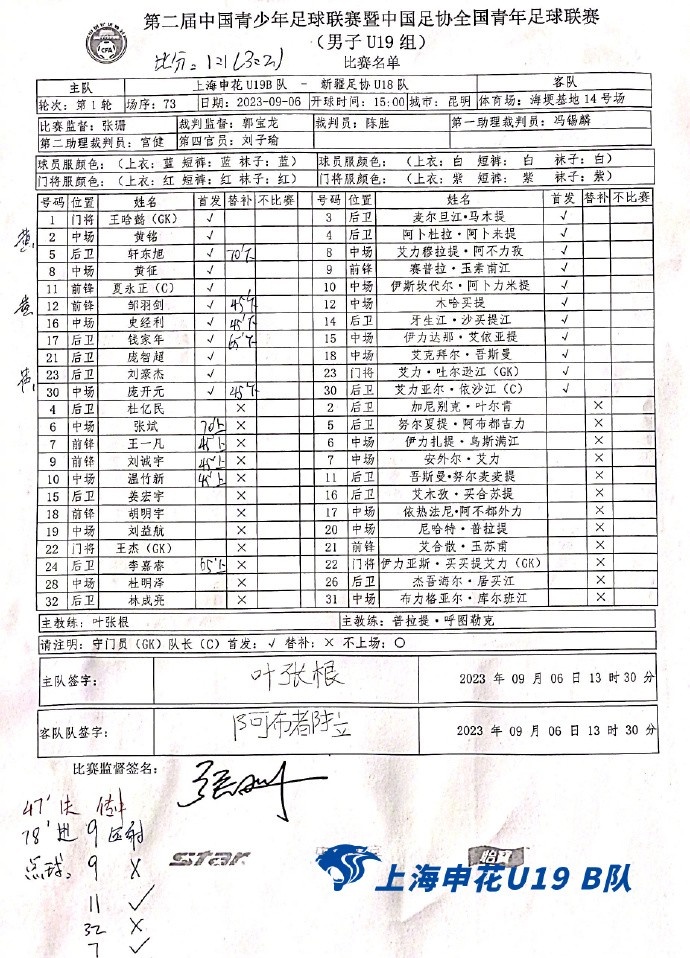 第二届中国青少年足球联赛暨中国足协全国青年足球联赛
（男子 U19 组）
比分：1:1（3:2）
比赛名单
主队 上海申花 U19B 队 - 新疆足协 U18 队 客队
轮次：第 1 轮 场序：73 日期：2023-09-06 开球时间：15:00 城市：昆明 体育场：海埂基地 14 号场
比赛监督：张珊 裁判监督：郭宝龙 裁判员：陈胜 第一助理裁判员：冯锡麟
第二助理裁判员：宫健 第四官员：刘子瑜
球员服颜色：（上衣：蓝 短裤：蓝 袜子：蓝） 球员服颜色：（上衣：白 短裤：白 袜子：白）
门将服颜色：（上衣：红 短裤：红 袜子：红） 门将服颜色：（上衣：紫 短裤：紫 袜子：紫）
号码 位置 姓名 首发 替补 不比赛 号码 位置 姓名 首发 替补 不比赛
1 门将 王哈懿（GK） √ 3 后卫 麦尔旦江·马木提 √
黄 2 中场 黄铭 √ 4 后卫 阿卜杜拉·阿卜未提 √
5 后卫 轩东旭 √ 70'下 8 中场 艾力穆拉提·阿不力孜 √
8 中场 黄征 √ 9 前锋 赛普拉·玉素甫江 √
11 前锋 夏永正（C） √ 10 中场 伊斯坎代尔·阿卜力米提 √
黄 12 前锋 邹羽剑 √ 45'下 12 中场 木哈买提 √
16 中场 史经利 √ 45'下 14 后卫 牙生江·沙买提江 √
17 后卫 钱家年 √ 65'下 15 中场 伊力达那·艾依亚提 √
21 后卫 庞智超 √ 18 中场 艾克拜尔·吾斯曼 √
23 后卫 刘豪杰 √ 23 门将 艾力·吐尔逊江（GK） √
30 中场 庞开元 √ 45'下 30 后卫 艾力亚尔·依沙江（C） √
4 后卫 杜亿民 × 2 后卫 加尼别克·叶尔肯 ×
6 中场 张斌 70'上 × 5 后卫 努尔夏提·阿布都吉力 ×
7 前锋 王一凡 45'上 × 6 中场 伊力扎提·乌斯满江 ×
9 前锋 刘诚宇 45'上 × 7 中场 安外尔·艾力 ×
10 中场 温竹新 45'上 × 11 后卫 吾斯曼·努尔麦麦提 ×
15 后卫 姜宏宇 × 16 后卫 艾木孜·买合苏提 ×
18 前锋 胡明宇 × 17 中场 依热法尼·阿不都外力 ×
19 中场 刘益航 × 20 中场 尼哈特·普拉提 ×
22 门将 王杰（GK） × 21 前锋 艾合散·玉苏甫 ×
24 后卫 李嘉睿 65'上 × 22 门将 伊力亚斯·买买提艾力（GK） ×
28 中场 杜明泽 × 26 后卫 杰吾海尔·居买江 ×
32 后卫 林成亮 × 31 中场 布力格亚尔·库尔班江 ×
主教练：叶张根 主教练：普拉提·呼图勒克
请注明：守门员（GK）队长（C）首发：√ 替补：× 不上场：○
主队签字： 叶张根 2023 年 09 月 06 日 13 时 30 分
客队队签字： 阿布都 2023 年 09 月 06 日 13 时 30 分
比赛监督签名： 张珊
47' 失
78' 进 9
点球：9 ×
11 √
32 ×
7 √
star
上海申花U19 B队